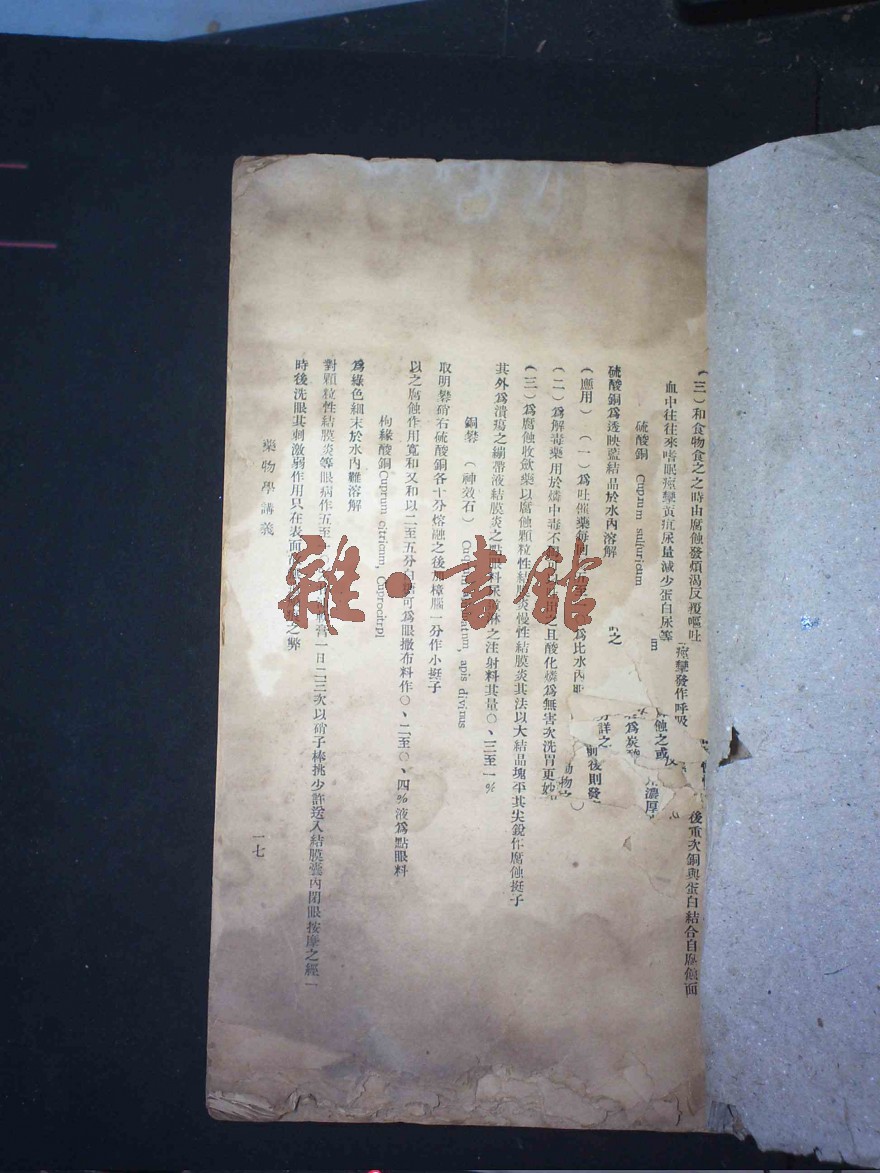 (三)和食物食之之時由腐蝕發煩渴反覆嘔吐
後重次銅與蛋白結合自腐蝕面
血中往往來嗜眠痙攣黃疸尿量減少蛋白尿等
痙攣發作呼吸
硫酸銅 Cuprum sulfuricum
蝕之或
硫酸銅爲透映藍結晶於水內溶解
爲炭
濃厚
(應用) (一)爲吐催藥每
爲比水內
前後則發
(二)爲解毒藥用於燐中毒不
且酸化燐爲無害次洗胃更妙
動物
(三)爲腐蝕收斂藥以腐蝕顆粒性結膜炎慢性結膜炎其法以大結晶塊平其尖銳作腐蝕挺子
其外爲潰瘍之繃帶液結膜炎之點眼料尿道淋之注射料其量〇、三至一%
銅攀 (神效石) apis divinus
取明攀硝石硫酸銅各十分熔融之後加樟腦一分作小挺子
以之腐蝕作用寬和又和以二至五分白糖可爲眼撒布料作〇、二至〇、四%液爲點眼料
枸緣酸銅 Cuprum citricum, Cuprocitrpl
爲綠色細末於水內難溶解
對顆粒性結膜炎等眼病作五至一〇
膏一日二三次以硝子棒挑少許送入結膜囊內閉眼按摩之經一
時後洗眼其刺激弱作用只在表面
之弊
藥物學講義
一七
雜·書館